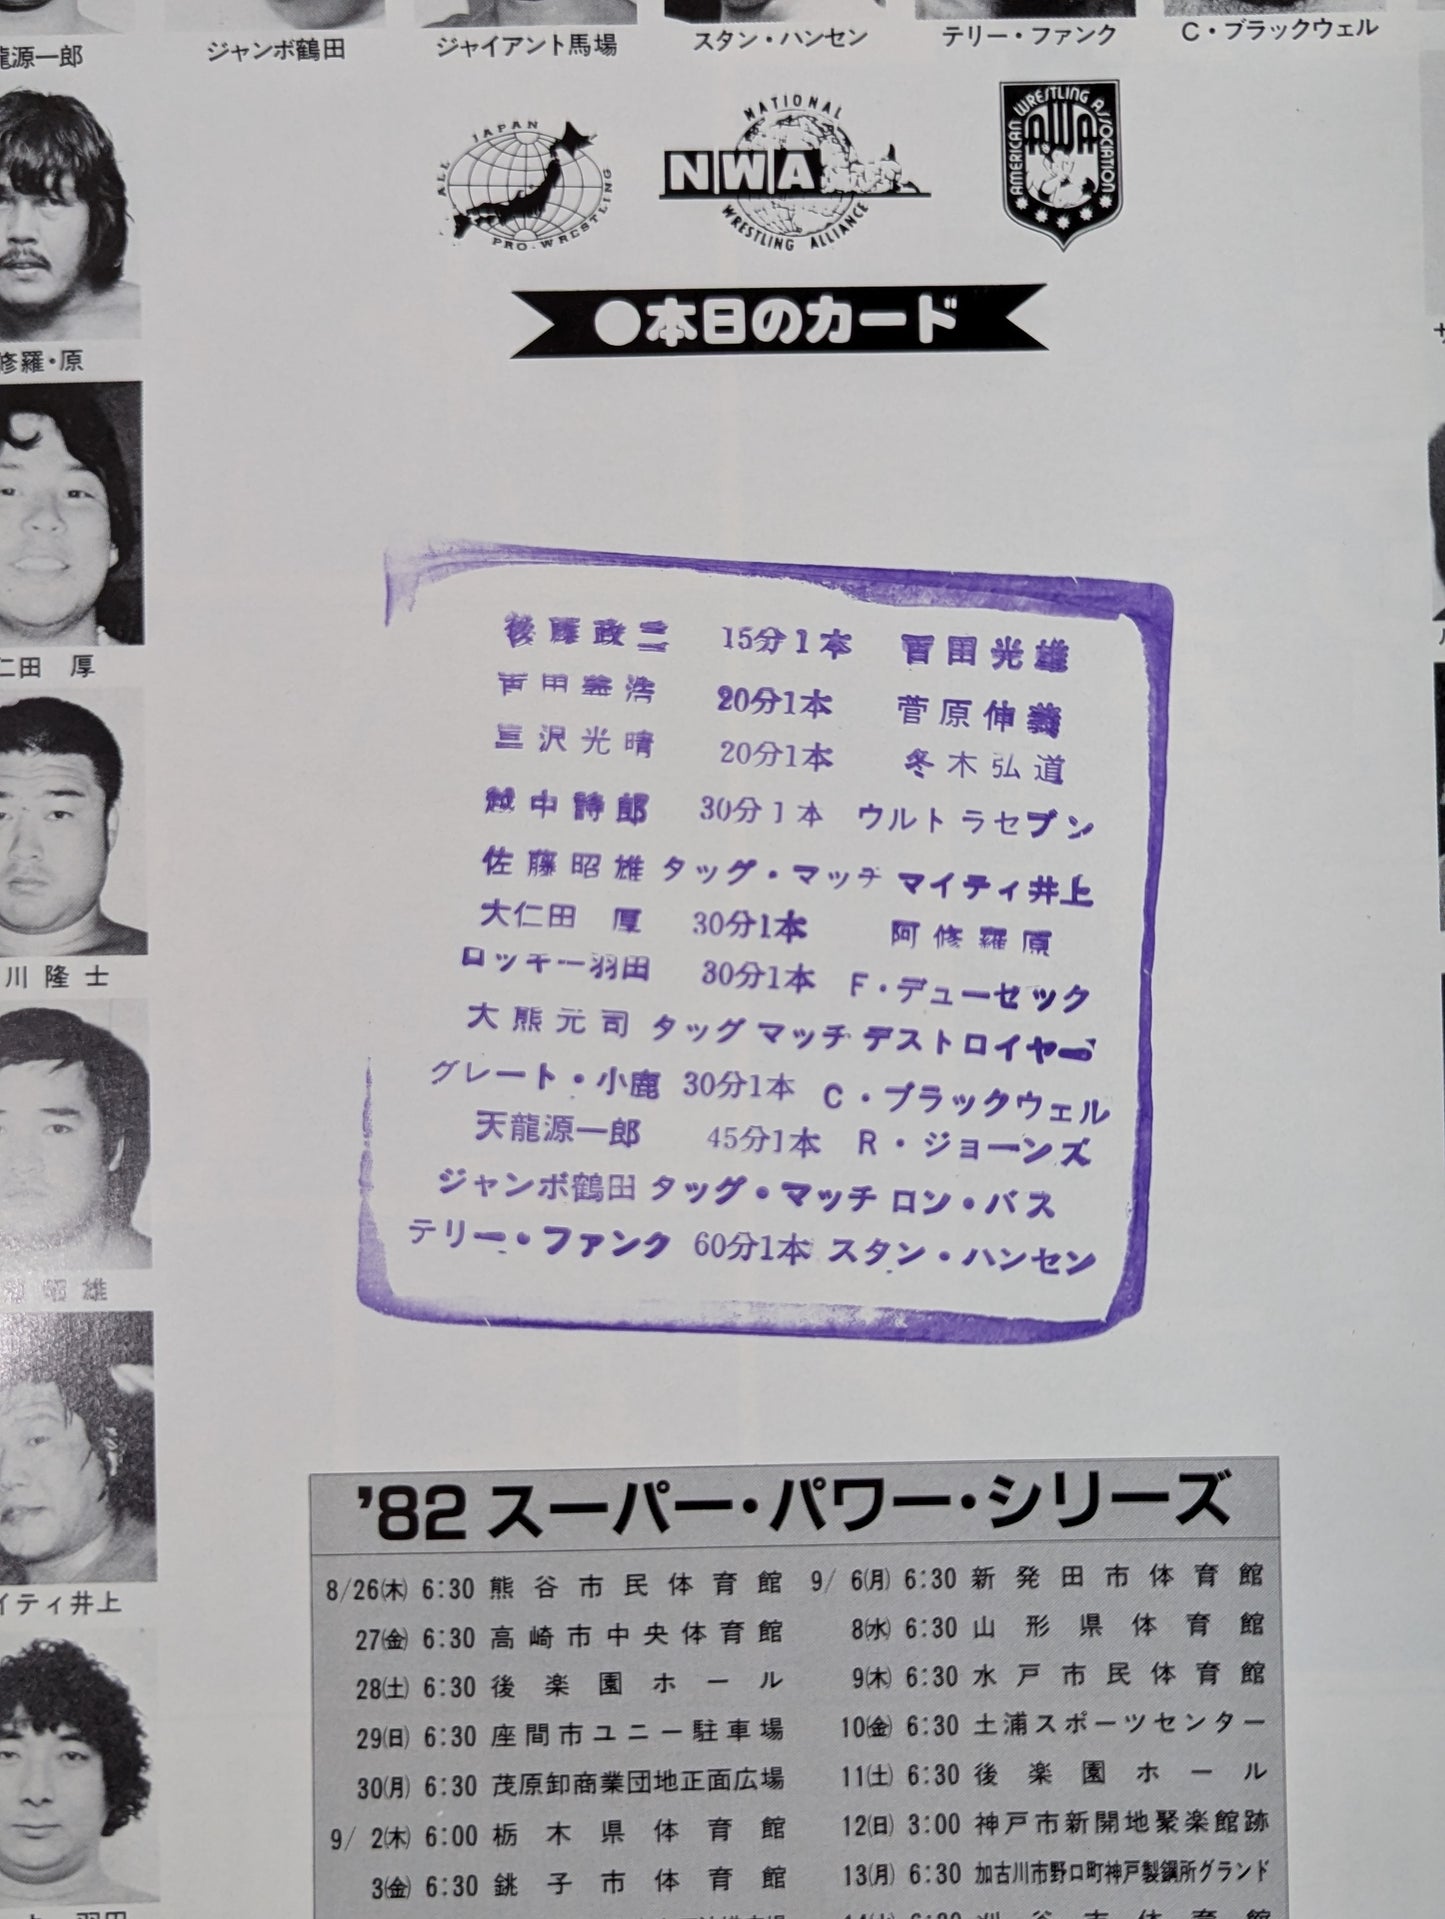 龍源一郎 ジャンボ鶴田 ジャイアント馬場 スタン・ハンセン テリー・ファンク C・ブラックウェル
ALL JAPAN PRO-WRESTLING
NATIONAL NWA WRESTLING ALLIANCE
AMERICAN WRESTLING ASSOCIATION AWA
●本日のカード
修羅・原
仁田 厚
川隆士
昭雄
イティ井上
後藤政二 15分1本 百田光雄
百田義浩 20分1本 菅原伸義
三沢光晴 20分1本 冬木弘道
越中詩郎 30分1本 ウルトラセブン
佐藤昭雄 タッグ・マッチ マイティ井上
大仁田 厚 30分1本 阿修羅原
ロッキー羽田 30分1本 F・デューセック
大熊元司 タッグマッチ デストロイヤー
グレート・小鹿 30分1本 C・ブラックウェル
天龍源一郎 45分1本 R・ジョーンズ
ジャンボ鶴田 タッグ・マッチ ロン・バス
テリー・ファンク 60分1本 スタン・ハンセン
'82 スーパー・パワー・シリーズ
8/26㈭ 6:30 熊谷市民体育館
27㈮ 6:30 高崎市中央体育館
28㈯ 6:30 後楽園ホール
29㈰ 6:30 座間市ユニー駐車場
30㈪ 6:30 茂原卸商業団地正面広場
9/ 2㈭ 6:00 栃木県体育館
3㈮ 6:30 銚子市体育館
9/ 6㈪ 6:30 新発田市体育館
8㈬ 6:30 山形県体育館
9㈭ 6:30 水戸市民体育館
10㈮ 6:30 土浦スポーツセンター
11㈯ 6:30 後楽園ホール
12㈰ 3:00 神戸市新開地聚楽館跡
13㈪ 6:30 加古川市野口町神戸製鋼所グランド